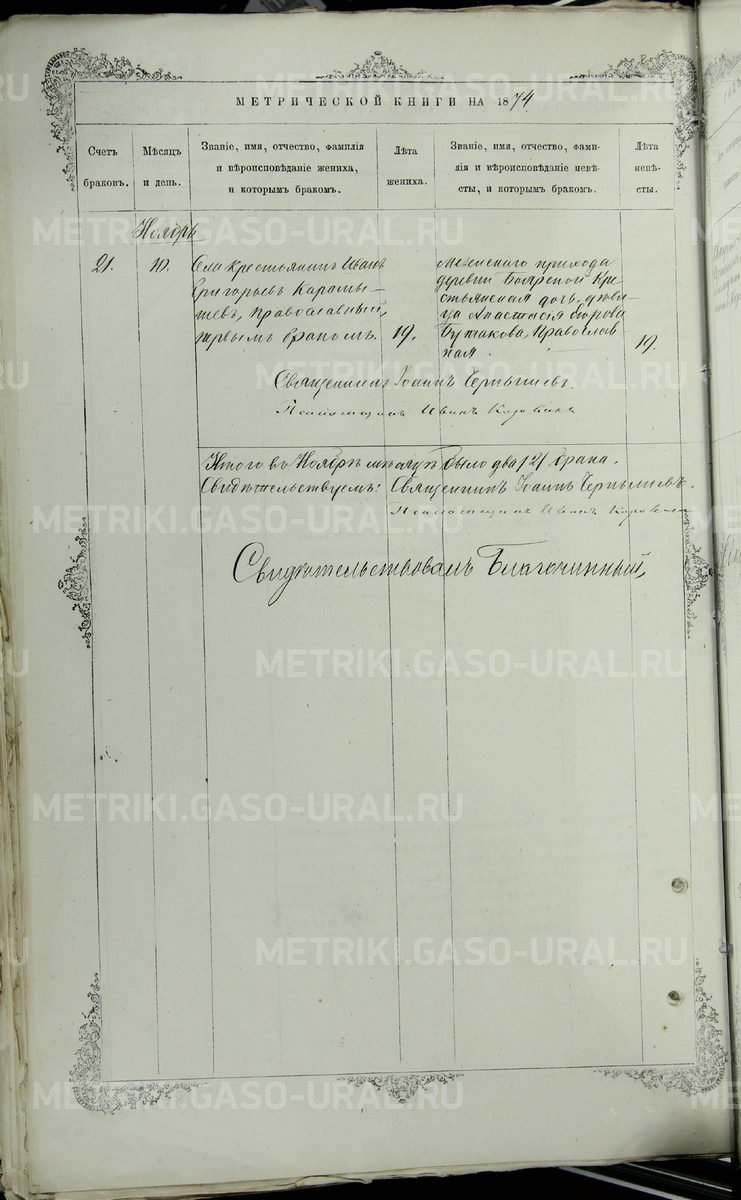 МЕТРИЧЕСКОЙ КНИГИ НА 1874
Счетъ браковъ.
Мѣсяцъ и день.
Званіе, имя, отчество, фамилія
и вѣроисповѣданіе жениха,
и которымъ бракомъ.
Лѣта жениха.
Званіе, имя, отчество, фами-
лія и вѣроисповѣданіе невѣ-
сты, и которымъ бракомъ.
Лѣта
невѣ-
сты.
Ноябрь
21.
10.
Села крестьянинъ Иванъ
Григорьевъ Карамы-
шевъ, православный,
первымъ бракомъ.
19.
прихода
деревни Боярской кре-
стьянская дочь, дѣви-
ца Анастасія
Бутакова, православ
ная.
19.
Священникъ Іоаннъ Чернышевъ.
Псаломщикъ Иванъ
Итого въ Ноябрѣ мѣсяцѣ было два /2/ брака.
Свидѣтельствуемъ: Священникъ Іоаннъ Чернышевъ.
Псаломщикъ Иванъ
Свидѣтельствовалъ Благочинный,
METRIKI.GASO-URAL.RU